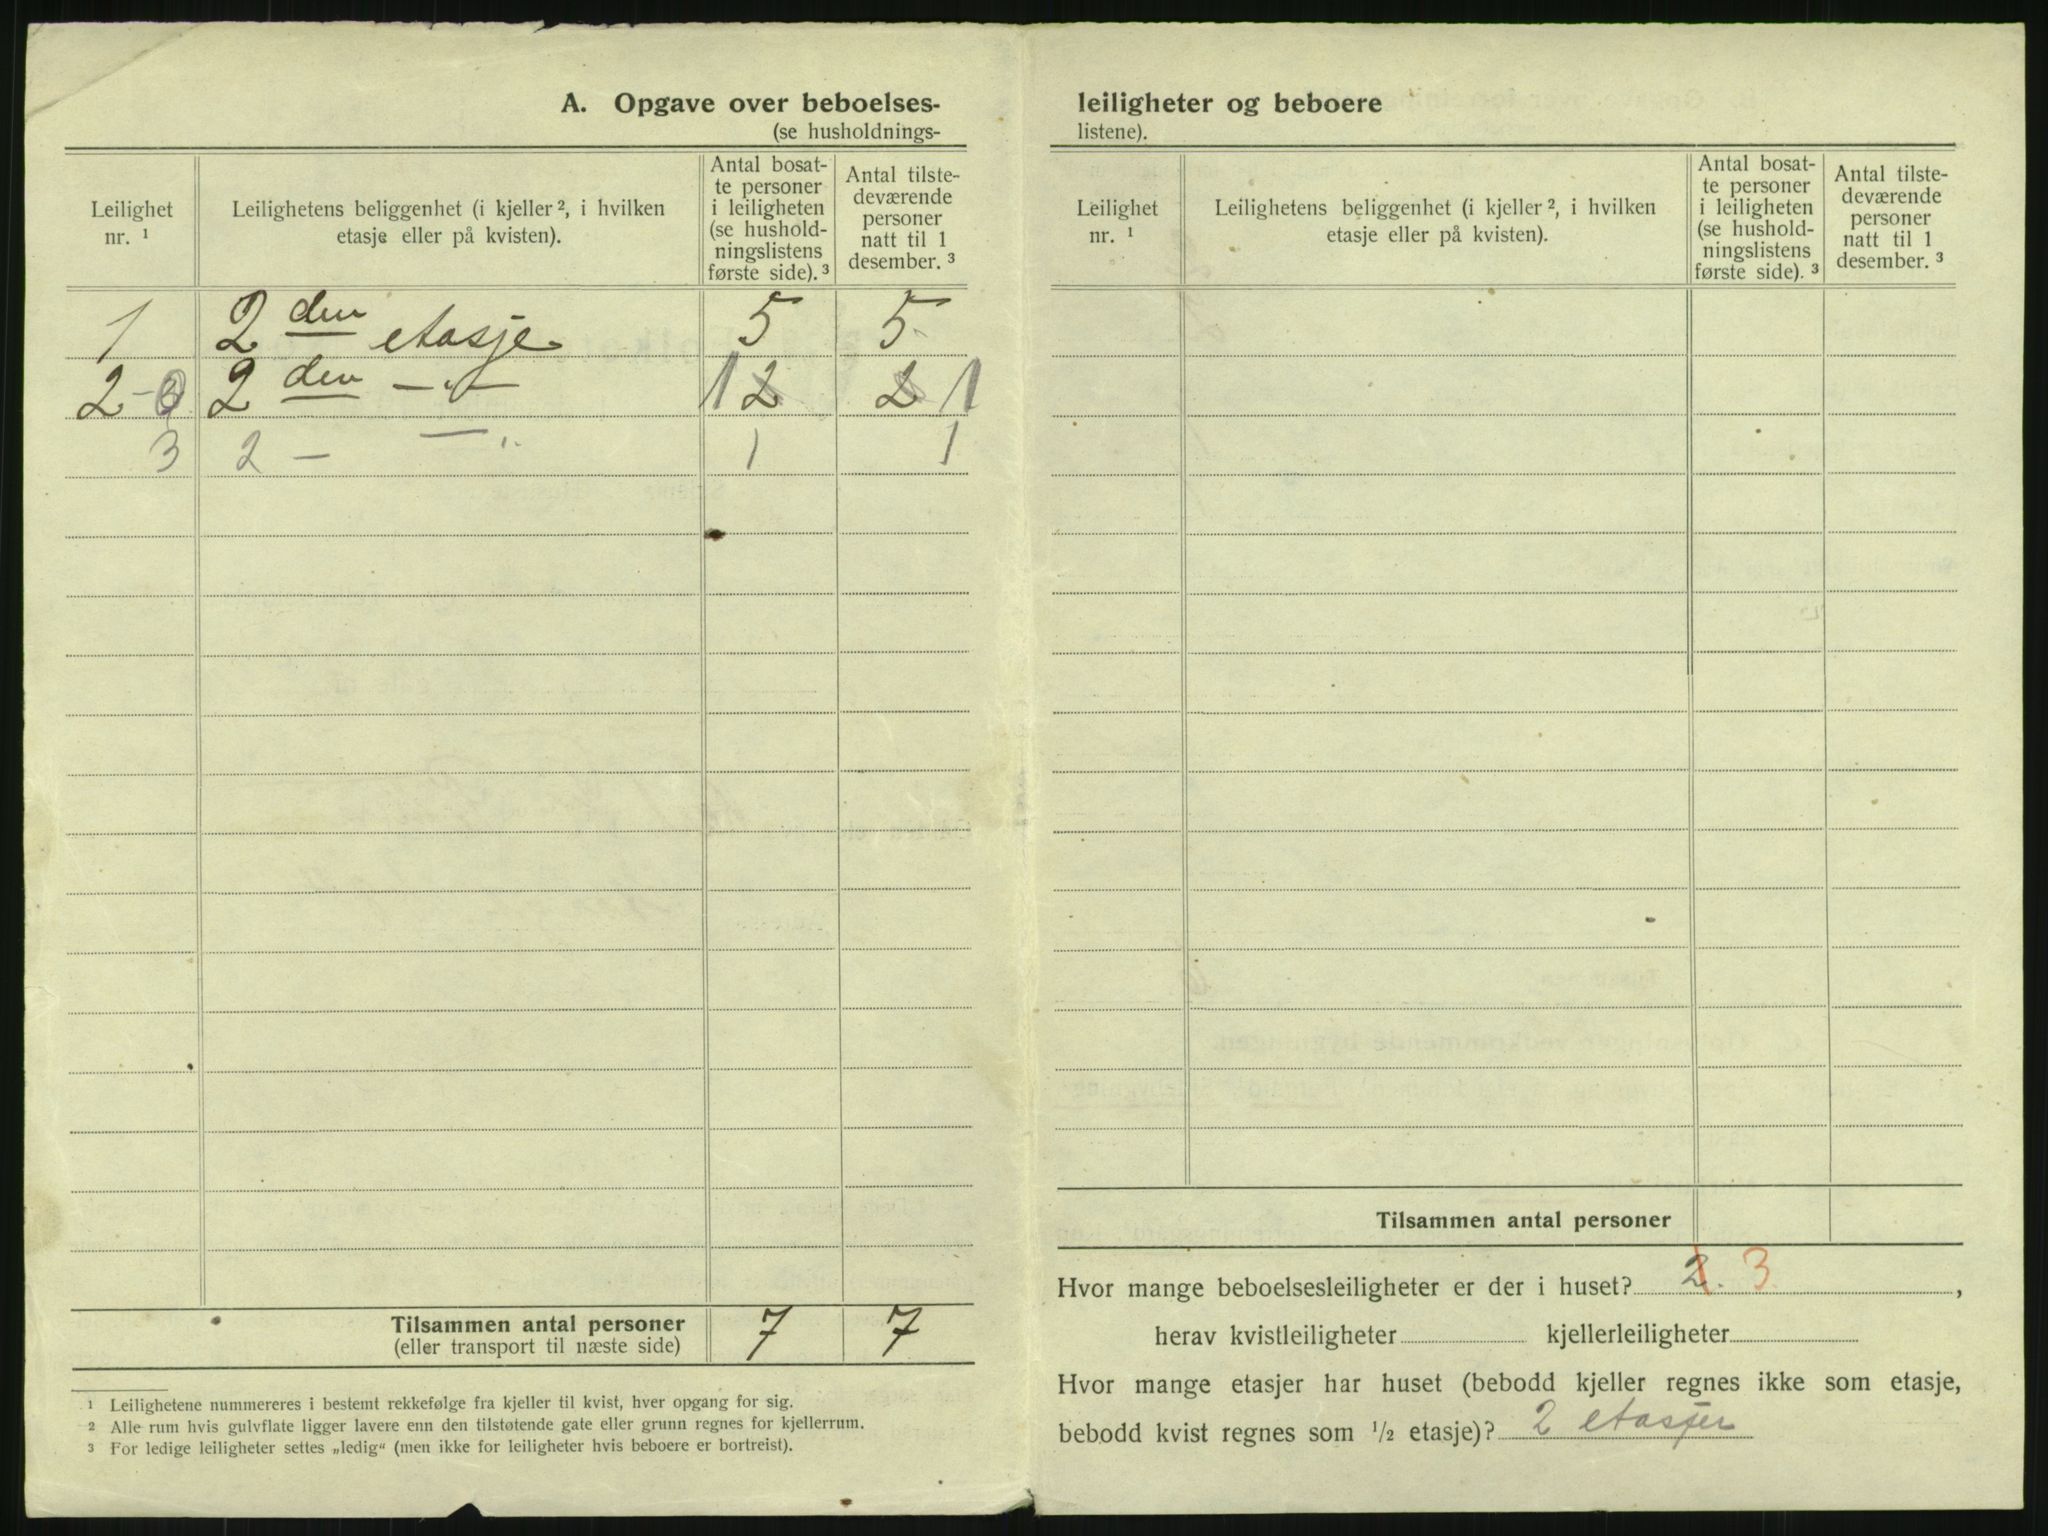 A. Opgave over beboelses-
(se husholdnings-
Leilighet nr. ¹
Leilighetens beliggenhet (i kjeller ², i hvilken etasje eller på kvisten).
Antal bosat-
te personer
i leiligheten
(se hushold-
ningslistens
første side). ³
Antal tilste-
deværende
personer
natt til 1
desember. ³
1 2 den etasje 5 5
2-3 2 den — " — 1 2 2 1
3 2 — — " 1 1
Tilsammen antal personer 7 7
(eller transport til næste side)
¹ Leilighetene nummereres i bestemt rekkefølge fra kjeller til kvist, hver opgang for sig.
² Alle rum hvis gulvflate ligger lavere enn den tilstøtende gate eller grunn regnes for kjellerrum.
³ For ledige leiligheter settes „ledig“ (men ikke for leiligheter hvis beboere er bortreist).
leiligheter og beboere
listene).
Leilighet nr. ¹
Leilighetens beliggenhet (i kjeller ², i hvilken etasje eller på kvisten).
Antal bosat-
te personer
i leiligheten
(se hushold-
ningslistens
første side). ³
Antal tilste-
deværende
personer
natt til 1
desember. ³
Tilsammen antal personer
Hvor mange beboelsesleiligheter er der i huset? 2. 3 ,
herav kvistleiligheter kjellerleiligheter
Hvor mange etasjer har huset (bebodd kjeller regnes ikke som etasje,
bebodd kvist regnes som ½ etasje)? 2 etasjer